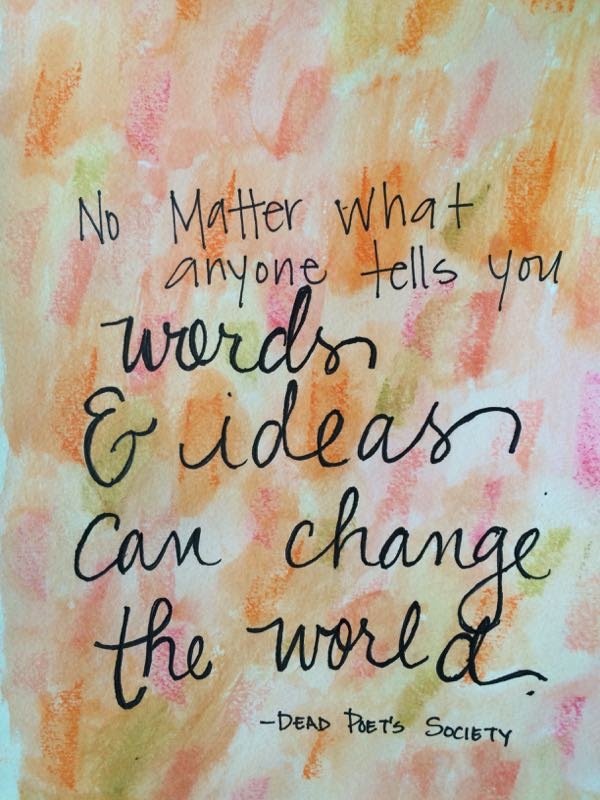 No Matter what
anyone tells you
words
& ideas
can change
the world.
-DEAD POET'S SOCIETY